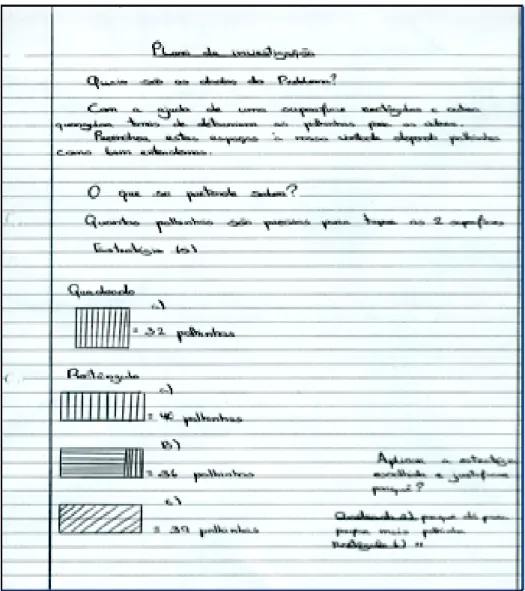 Plano de investigação
Quais são os dados do Problema?
Com a ajuda de uma superfície rectângulos e outra
quangular temos de determinar as palhinhas para as cobrir.
estes espaços à nossa vontade palhinhas
como bem entendemos.
O que se pretende saber?
Quantas palhinhas são precisas para tapar as 2 superfícies
Estratégia (s)
Quadrado
a)
= 32 palhinhas
Rectângulo
a)
= 46 palhinhas
B)
= 36 palhinhas
c)
= 39 palhinhas
Aplicar a estratégia
escolhida e justificar
porquê?
Quadrado a) porque dá para
mais palhinhas
Rectângulo b) "